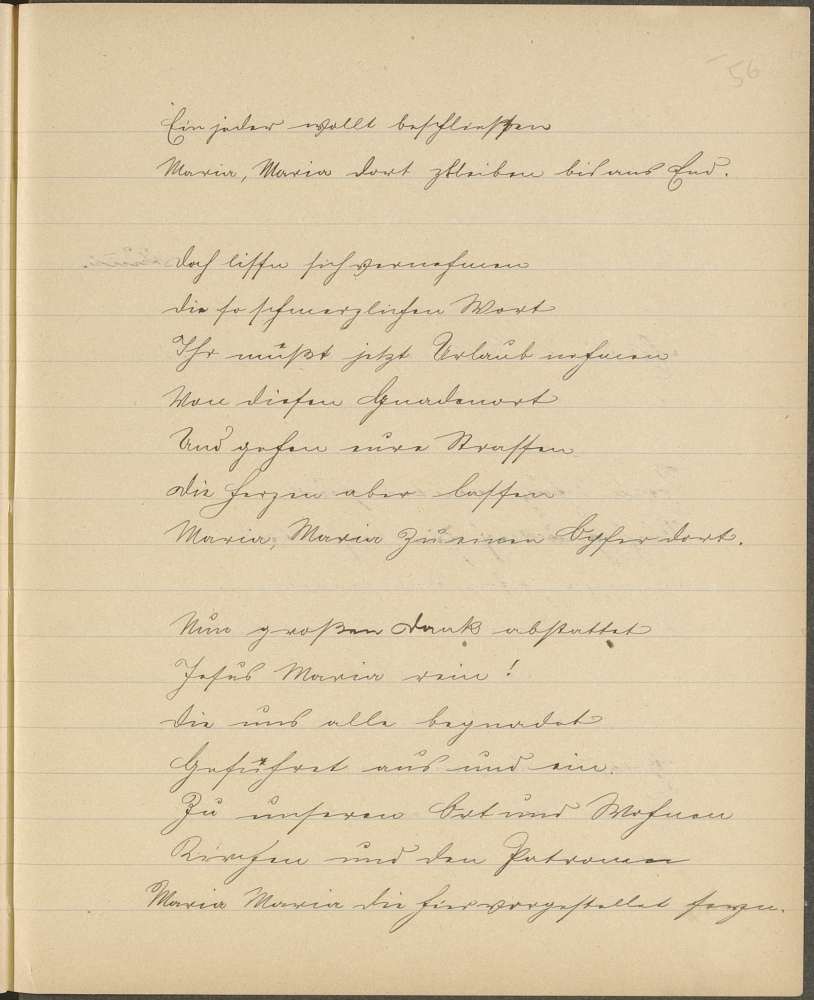 56
Ein jeder wollt beschliessen
Maria, Maria dort zbleiben bis ans End.
Doch lissn sich vernehmen
die so schmerzlichen Wort
Ihr müßt jetzt Urlaub nehmen
Von diesen Gnadenort
Und gehen eure Strassen
die Herzen aber lassen
Maria, Maria zu einen Opfer dort.
Nun großen Dank abstattet
Jesus Maria rein!
die uns alle begnadet
Geführet aus und ein.
Zu unseren Ort und Wohnen
Kirchen und den Patronen
Maria Maria die hier vorgestellet seyn.